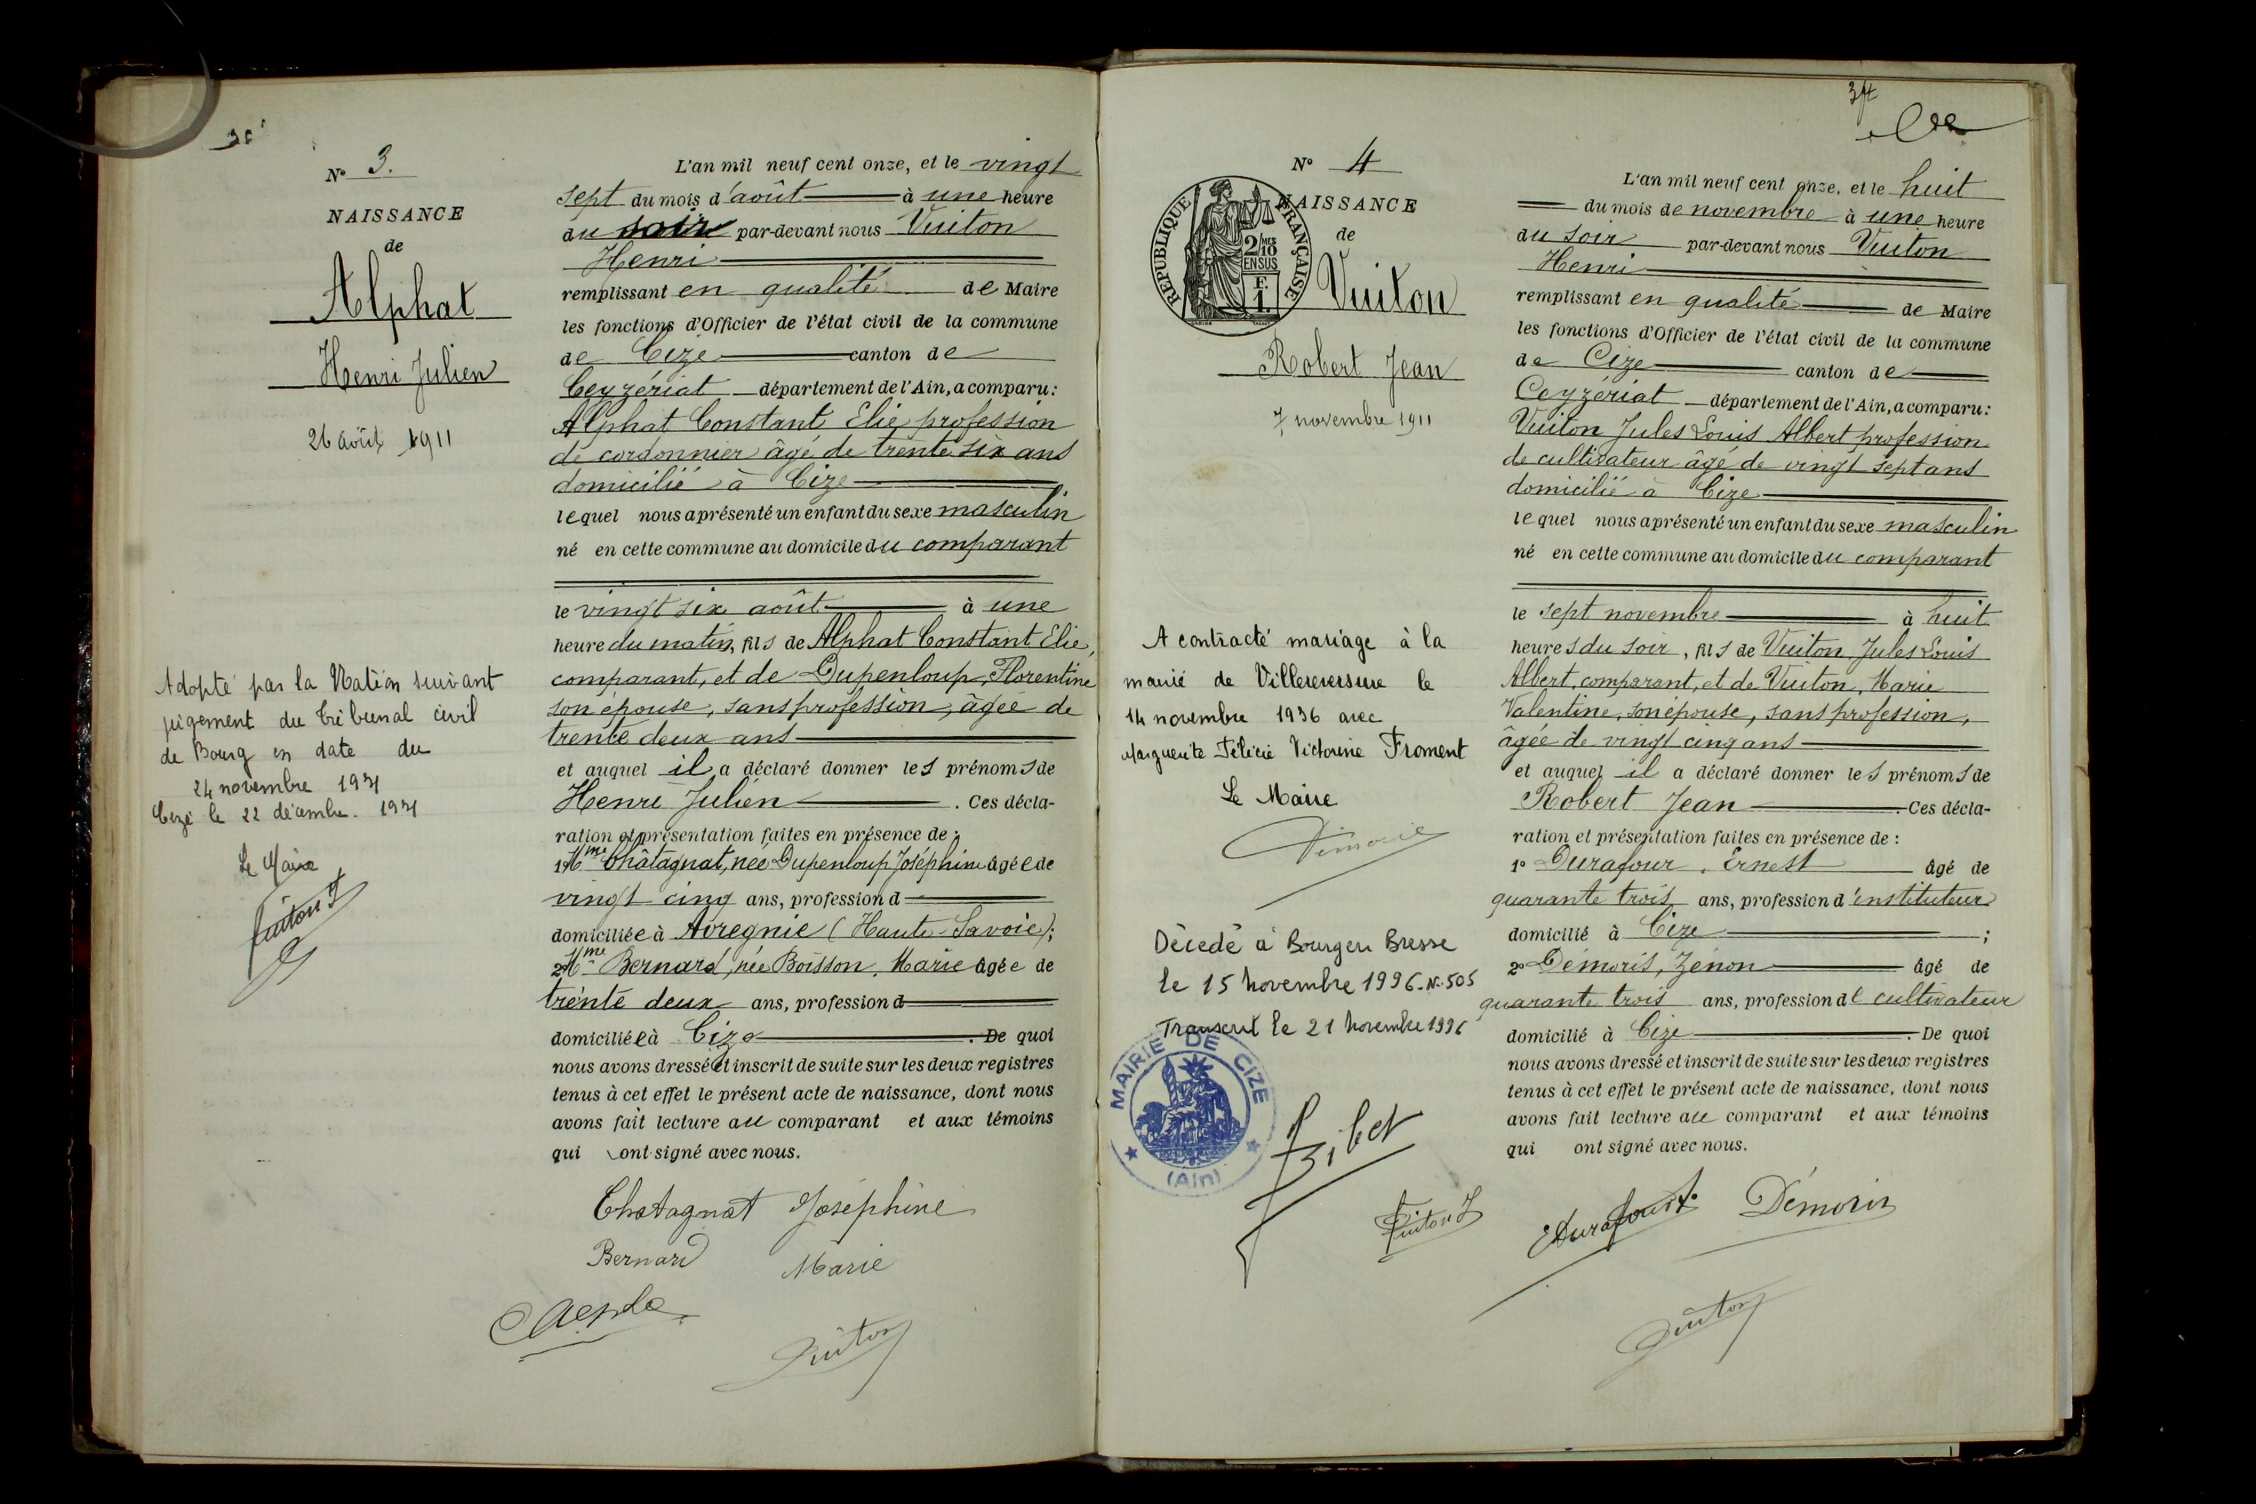 36
N° 3.
NAISSANCE
de
Alphat
Henri Julien
26 août 1911
Adopté par la Nation suivant
jugement du Tribunal civil
de Bourg en date du
24 novembre
Cize le 22 décembre.
Le Maire
L'an mil neuf cent onze, et le vingt
sept du mois d'août à une heure
du soir par-devant nous Vuiton
Henri
remplissant en qualité de Maire
les fonctions d'Officier de l'état civil de la commune
de Cize canton de
Ceyzériat département de l'Ain, a comparu:
Alphat Constant Elie, profession
de cordonnier âgé de trente six ans
domicilié à Cize
lequel nous a présenté un enfant du sexe masculin
né en cette commune au domicile du comparant
le vingt six août à une
heure du matin, fils de Alphat Constant Elie,
comparant, et de Dupenloup, Florentine
son épouse, sans profession, âgée de
trente deux ans
et auquel il a déclaré donner les prénoms de
Henri Julien . Ces décla-
ration et présentation faites en présence de :
1° Mme Châtagnat, née Dupenloup Joséphine âgée de
vingt cinq ans, profession d
domiciliée à Avregnie (Haute-Savoie);
2° Mme Bernard, née Boisson, Marie âgée de
trente deux ans, profession d
domiciliée à Cize . De quoi
nous avons dressé et inscrit de suite sur les deux registres
tenus à cet effet le présent acte de naissance, dont nous
avons fait lecture au comparant et aux témoins
qui ont signé avec nous.
Chatagnat Joséphine
Bernard Marie
Vuiton
N° 4
NAISSANCE
de
RÉPUBLIQUE FRANÇAISE
2/10
EN SUS
1 F.
Vuiton
Robert Jean
7 novembre 1911
A contracté mariage à la
mairie de Villereversure le
14 novembre 1936 avec
Marguerite Félicie Victorine Froment
Le Maire
Décédé à Bourg en Bresse
le 15 novembre 1996 - N° 505
Transcrit le 21 novembre 1996
MAIRIE DE CIZE
(Ain)
L'an mil neuf cent onze, et le huit
du mois de novembre à une heure
du soir par-devant nous Vuiton
Henri
remplissant en qualité de Maire
les fonctions d'Officier de l'état civil de la commune
de Cize canton de
Ceyzériat département de l'Ain, a comparu:
Vuiton Jules Louis Albert profession
de cultivateur âgé de vingt sept ans
domicilié à Cize
lequel nous a présenté un enfant du sexe masculin
né en cette commune au domicile du comparant
le sept novembre à huit
heures du soir, fils de Vuiton, Jules Louis
Albert, comparant, et de Vuiton, Marie
Valentine, son épouse, sans profession,
âgée de vingt cinq ans
et auquel il a déclaré donner les prénoms de
Robert Jean . Ces décla-
ration et présentation faites en présence de :
1° Durafour, Ernest âgé de
quarante trois ans, profession d'instituteur
domicilié à Cize ;
2° Démoris, Zénon âgé de
quarante trois ans, profession de cultivateur
domicilié à Cize . De quoi
nous avons dressé et inscrit de suite sur les deux registres
tenus à cet effet le présent acte de naissance, dont nous
avons fait lecture au comparant et aux témoins
qui ont signé avec nous.
Vuiton J
Durafour
Démoris
Vuiton